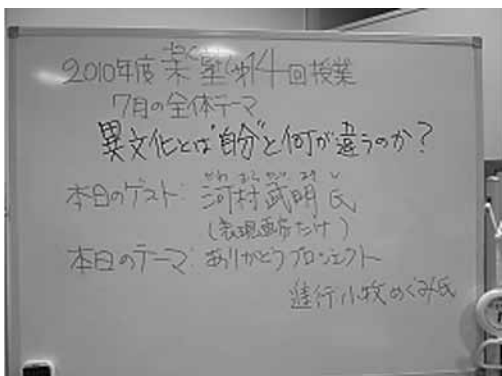 2010年度 楽塾 第4回授業
7月の全体テーマ
異文化とは"自分"と何が違うのか?
本日のゲスト: 河村武明氏
(表現画家たけ)
本日のテーマ: ありがとうプロジェクト
進行 小牧めぐみ氏